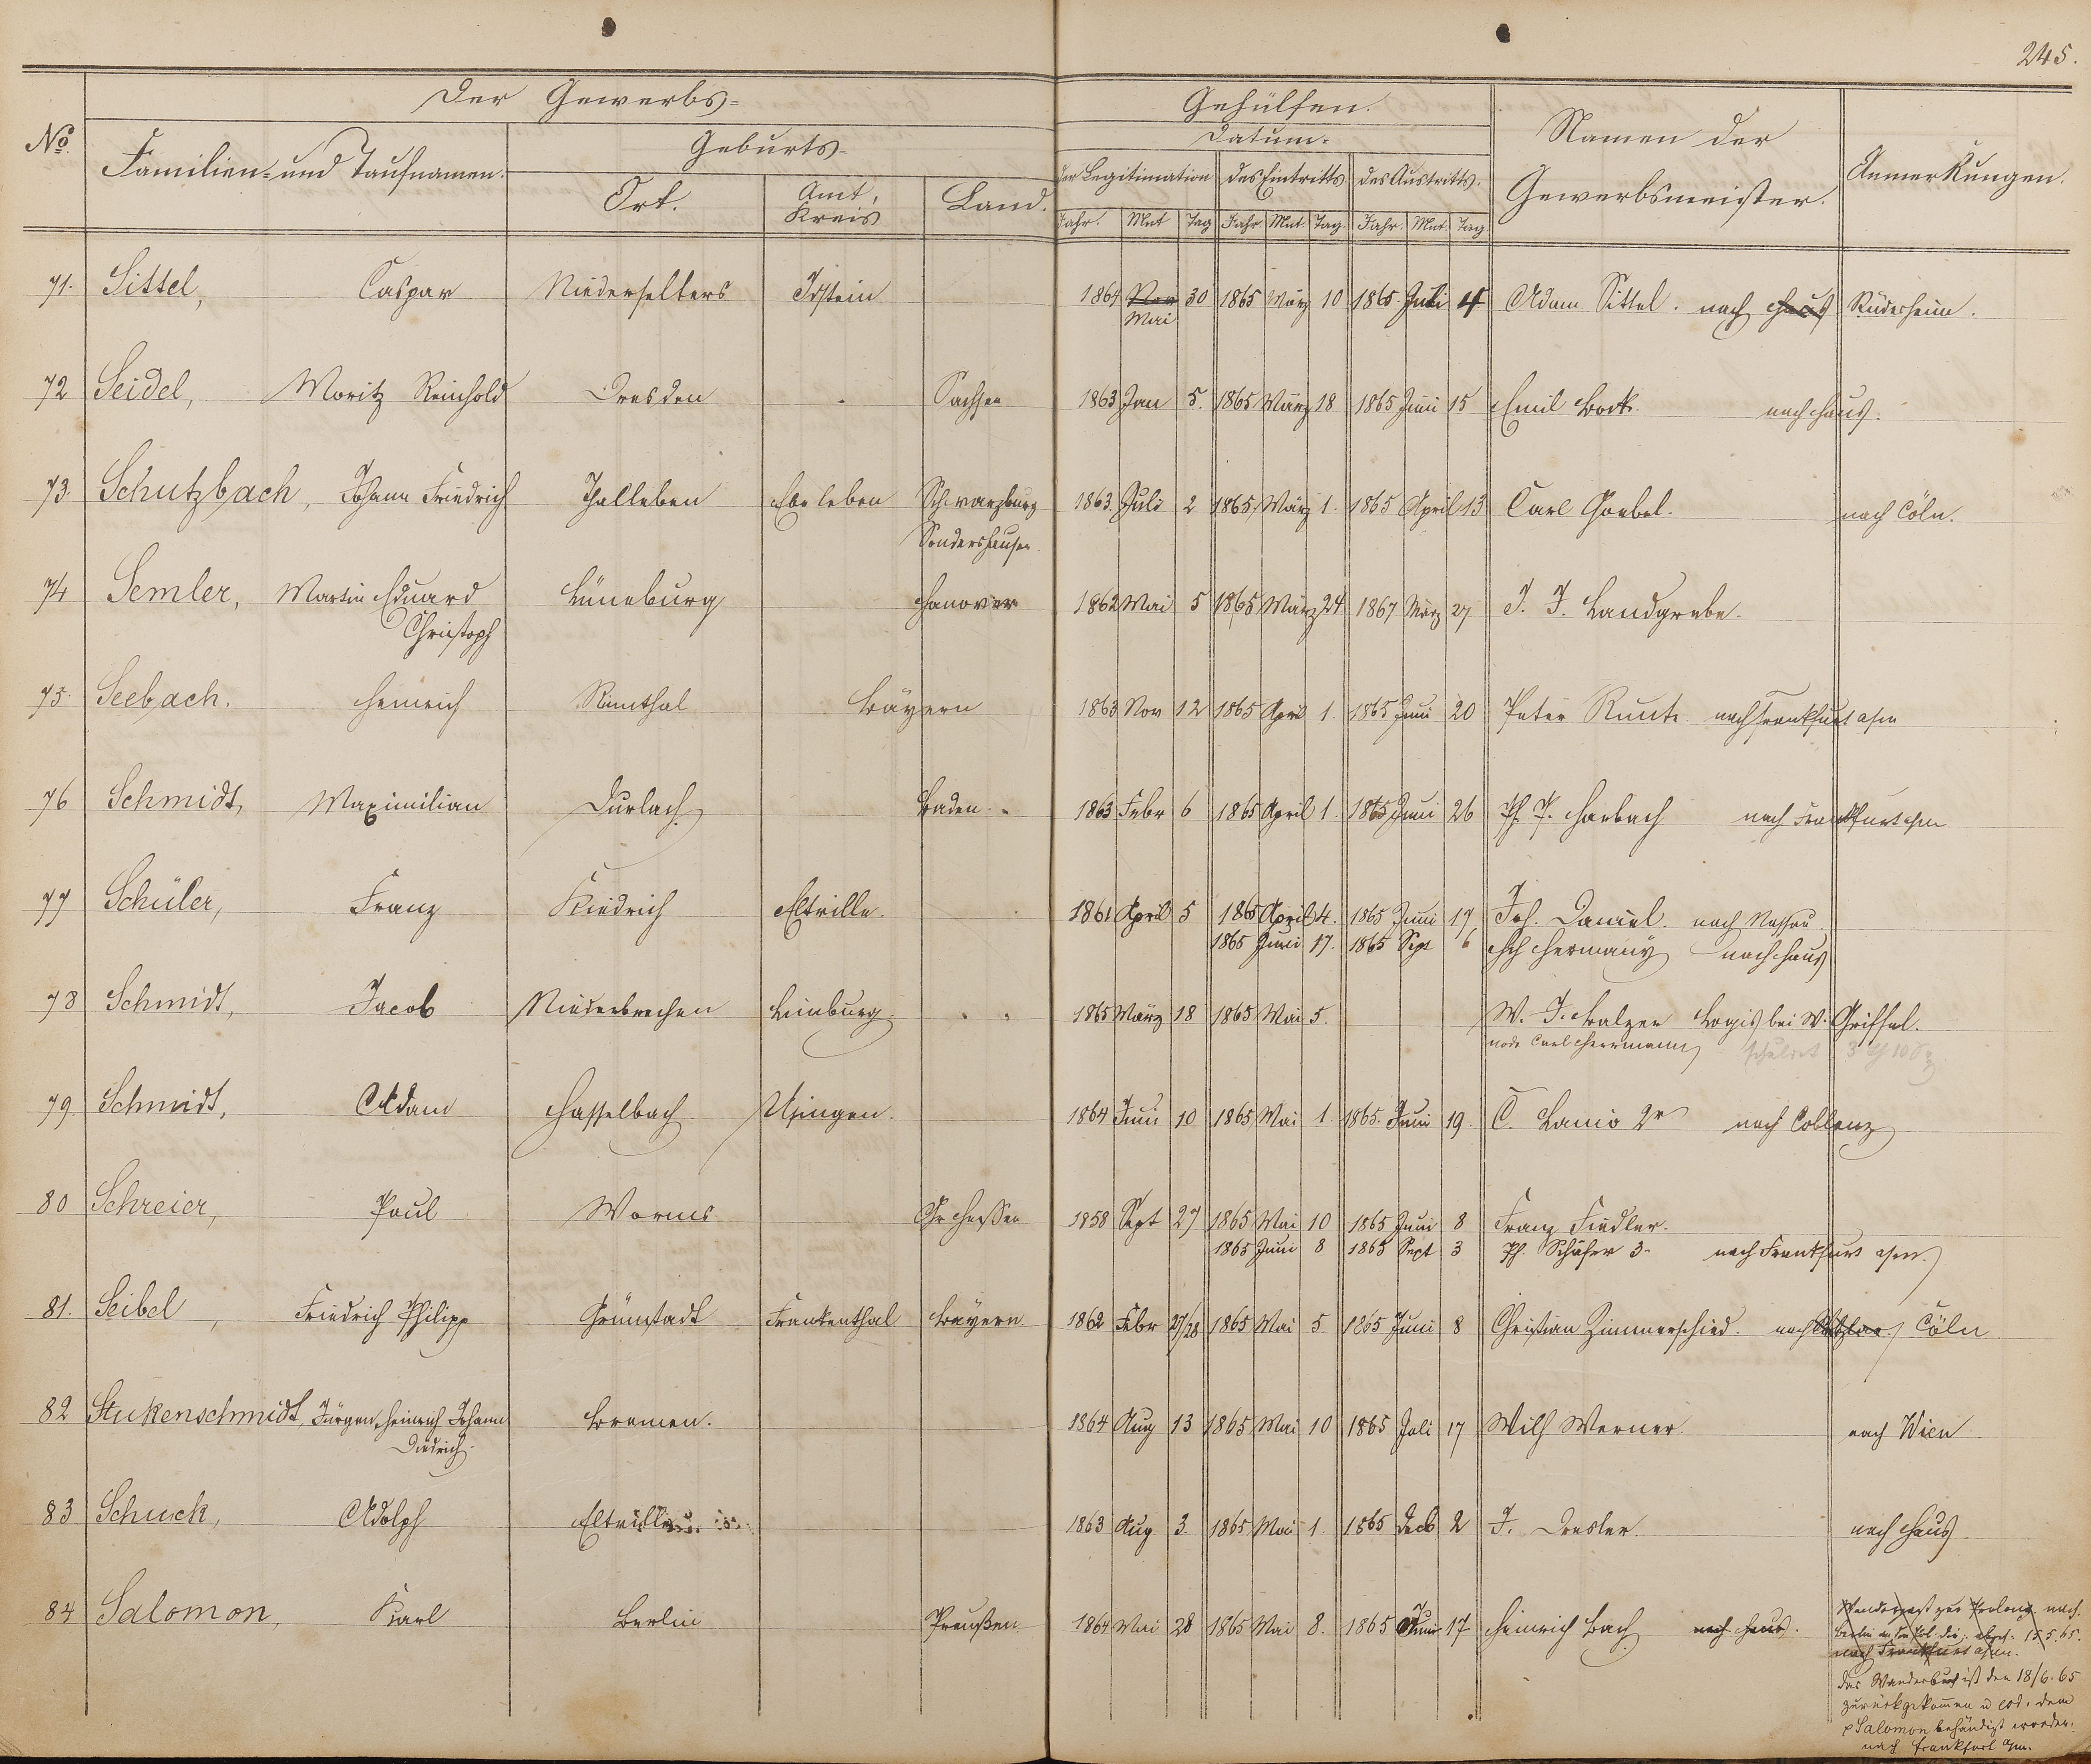 245.
Der Gewerbs-
Gehülfen.
No.
Familien- und Taufnamen.
Geburts-
Ort.
Amt, Kreis
Land.
Datum.
der Legitimation des Eintritts des Austritts.
Jahr. Mnt Tag Jahr Mnt. Tag. Jahr. Mnt. Tag.
Namen der
Gewerbsmeister.
Anmerkungen.
71. Sittel, Caspar Niederselters Idstein 1864 Nov 30 1865 März 10 1865 Juli 4 Adam Sittel. nach Haus Rüdesheim.
Mai
72 Seidel, Moritz Reinhold Dresden Sachsen 1863 Jan 5. 1865 März 18 1865 Juni 15 Emil Bock. nach Haus.
73. Schutzbach, Johann Friedrich Thalleben Ebeleben Schwarzburg 1863. Juli 2 1865 März 1. 1865 April 13 Carl Goebel. nach Cöln.
Sondershausen.
74 Semler, Martin Eduard Lüneburg Hanover 1862 Mai 5 1865 März 24 1867 März 27 J. J. Landgrebe.
Christoph
75. Seebach. Heinrich Rumthal Bayern 1863 Nov 12 1865 April 1. 1865 Juni 20 Peter Runte nach Frankfurt a/m
76 Schmidt, Maximilian Durlach Baden. 1863 Febr 6 1865 April 1. 1865 Juni 26 Ph. P. Harbach nach Frankfurt a/m
77 Schüler, Franz Kiedrich Eltville. 1861 April 5 1865 April 4. 1865 Juni 17 Joh. Daniel. nach Nassau.
1865 Juni 17. 1865 Sept 6 Hch Hermany nach Haus
78 Schmidt, Jacob Niederbrechen Limburg. 1865 März 18 1865 Mai 5. W. J. Balzer Logis bei W. Griffel.
modo Carl Herrmann schuldet 3
79. Schmidt, Adam Hasselbach Usingen. 1864 Juni 10 1865 Mai 1. 1865. Juni 19. C. Lanio 2r nach Coblenz
80 Schreier, Paul Worms Gr Hessen 1858 Sept 27 1865 Mai 10 1865 Juni 8 Franz Fiedler.
1865 Juni 8 1865 Sept 3 Ph. Schäfer 3. nach Frankfurt a/m.
81. Seibel, Friedrich Philipp Grünstadt Frankenthal Bayern 1862 Febr 27/28 1865 Mai 5. 1865 Juni 8 Christian Zimmerschied. nach Wetzlar Cöln
82 Stukenschmidt, Jürgen Heinrich Johann Bremen. 1864 Aug 13 1865 Mai 10 1865 Juli 17 Wilh Werner. nach Wien
Diedrich.
83 Schuck, Adolph Eltville 1863 Aug 3. 1865 Mai 1. 1865 Decb 2 J. Dresler nach Haus
84 Salomon, Karl Berlin Preußen 1864 Mai 28 1865 Mai 8. 1865 Juni 17 Heinrich Bach nach Haus.
zur Prolong. nach
Berlin 15.5.65.
nach Frankfurt a/m.
das Wanderbuch ist den 18/6.65
zurückgekommen u eod. dem
p Salomon behändigt worden.
nach Frankfurt a/m.